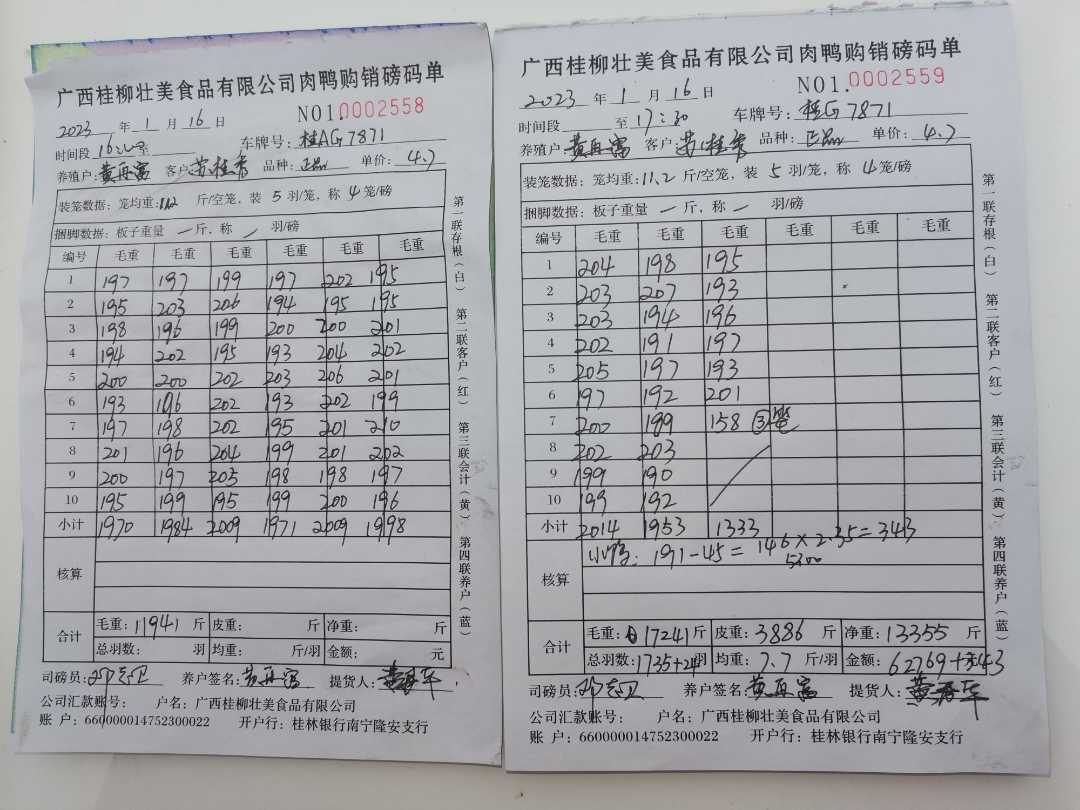 广西桂柳壮美食品有限公司肉鸭购销磅码单
NO1.0002558
2023 年 1 月 16 日
时间段 至 车牌号：桂AG7871
养殖户：黄再富 客户：苏桂秀 品种：正品 单价：4.7
装笼数据：笼均重：11.2 斤/空笼，装 5 羽/笼，称 4 笼/磅
捆脚数据：板子重量 一 斤，称 一 羽/磅
编号 毛重 毛重 毛重 毛重 毛重 毛重
1 197 197 199 197 202 195
2 195 203 206 194 195 195
3 198 196 199 200 200 201
4 194 202 195 193 204 202
5 200 200 202 203 206 201
6 193 196 202 193 202 199
7 197 198 202 195 201 210
8 201 196 204 199 201 202
9 200 197 205 198 198 197
10 195 199 195 199 200 196
小计 1970 1984 2009 1971 2009 1998
核算
合计 毛重：11941 斤 皮重： 斤 净重： 斤
总羽数： 羽 均重： 斤/羽 金额： 元
司磅员： 养户签名：黄再富 提货人：
公司汇款账号： 户名：广西桂柳壮美食品有限公司
账 户：660000014752300022 开户行：桂林银行南宁隆安支行
第一联存根（白） 第二联客户（红） 第三联会计（黄） 第四联养户（蓝）
广西桂柳壮美食品有限公司肉鸭购销磅码单
NO1.0002559
2023 年 1 月 16 日
时间段 至 17:30 车牌号：桂G7871
养殖户：黄再富 客户：苏桂秀 品种：正品 单价：4.7
装笼数据：笼均重：11.2 斤/空笼，装 5 羽/笼，称 4 笼/磅
捆脚数据：板子重量 一 斤，称 一 羽/磅
编号 毛重 毛重 毛重 毛重 毛重 毛重
1 204 198 195
2 203 207 193
3 203 194 196
4 202 191 197
5 205 197 193
6 197 192 201
7 200 189 158 ③笼
8 202 203
9 199 190
10 199 192
小计 2014 1953 1333
核算 小鸭：191-45=146×2.35=343
5300
合计 毛重：17241 斤 皮重：3886 斤 净重：13355 斤
总羽数：1735+24 羽 均重：7.7 斤/羽 金额：62769+343
司磅员： 养户签名：黄再富 提货人：
公司汇款账号： 户名：广西桂柳壮美食品有限公司
账 户：660000014752300022 开户行：桂林银行南宁隆安支行
第一联存根（白） 第二联客户（红） 第三联会计（黄） 第四联养户（蓝）